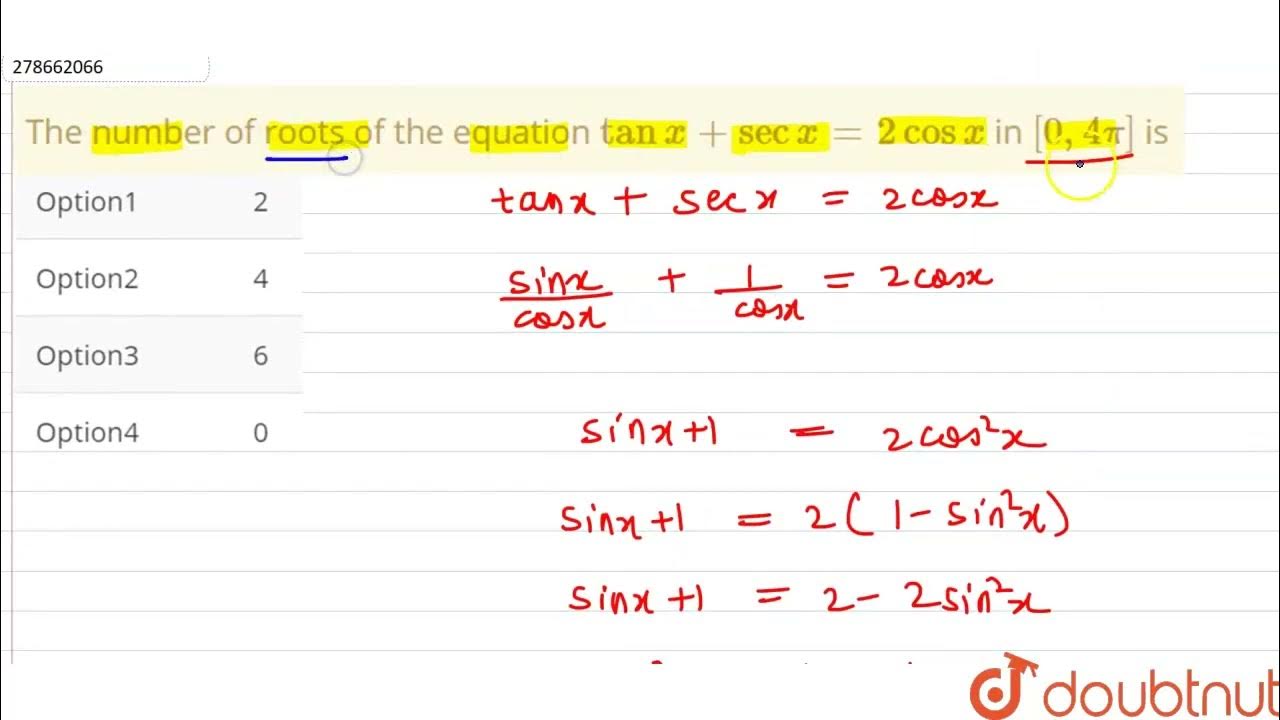 278662066
The number of roots of the equation tan x + sec x = 2 cos x in [0, 4π] is
Option1 2
Option2 4
Option3 6
Option4 0
tanx + secx = 2cosx
sinx/cosx + 1/cosx = 2cosx
sinx+1 = 2cos²x
sinx+1 = 2(1-sin²x)
sinx+1 = 2-2sin²x
doubtnut